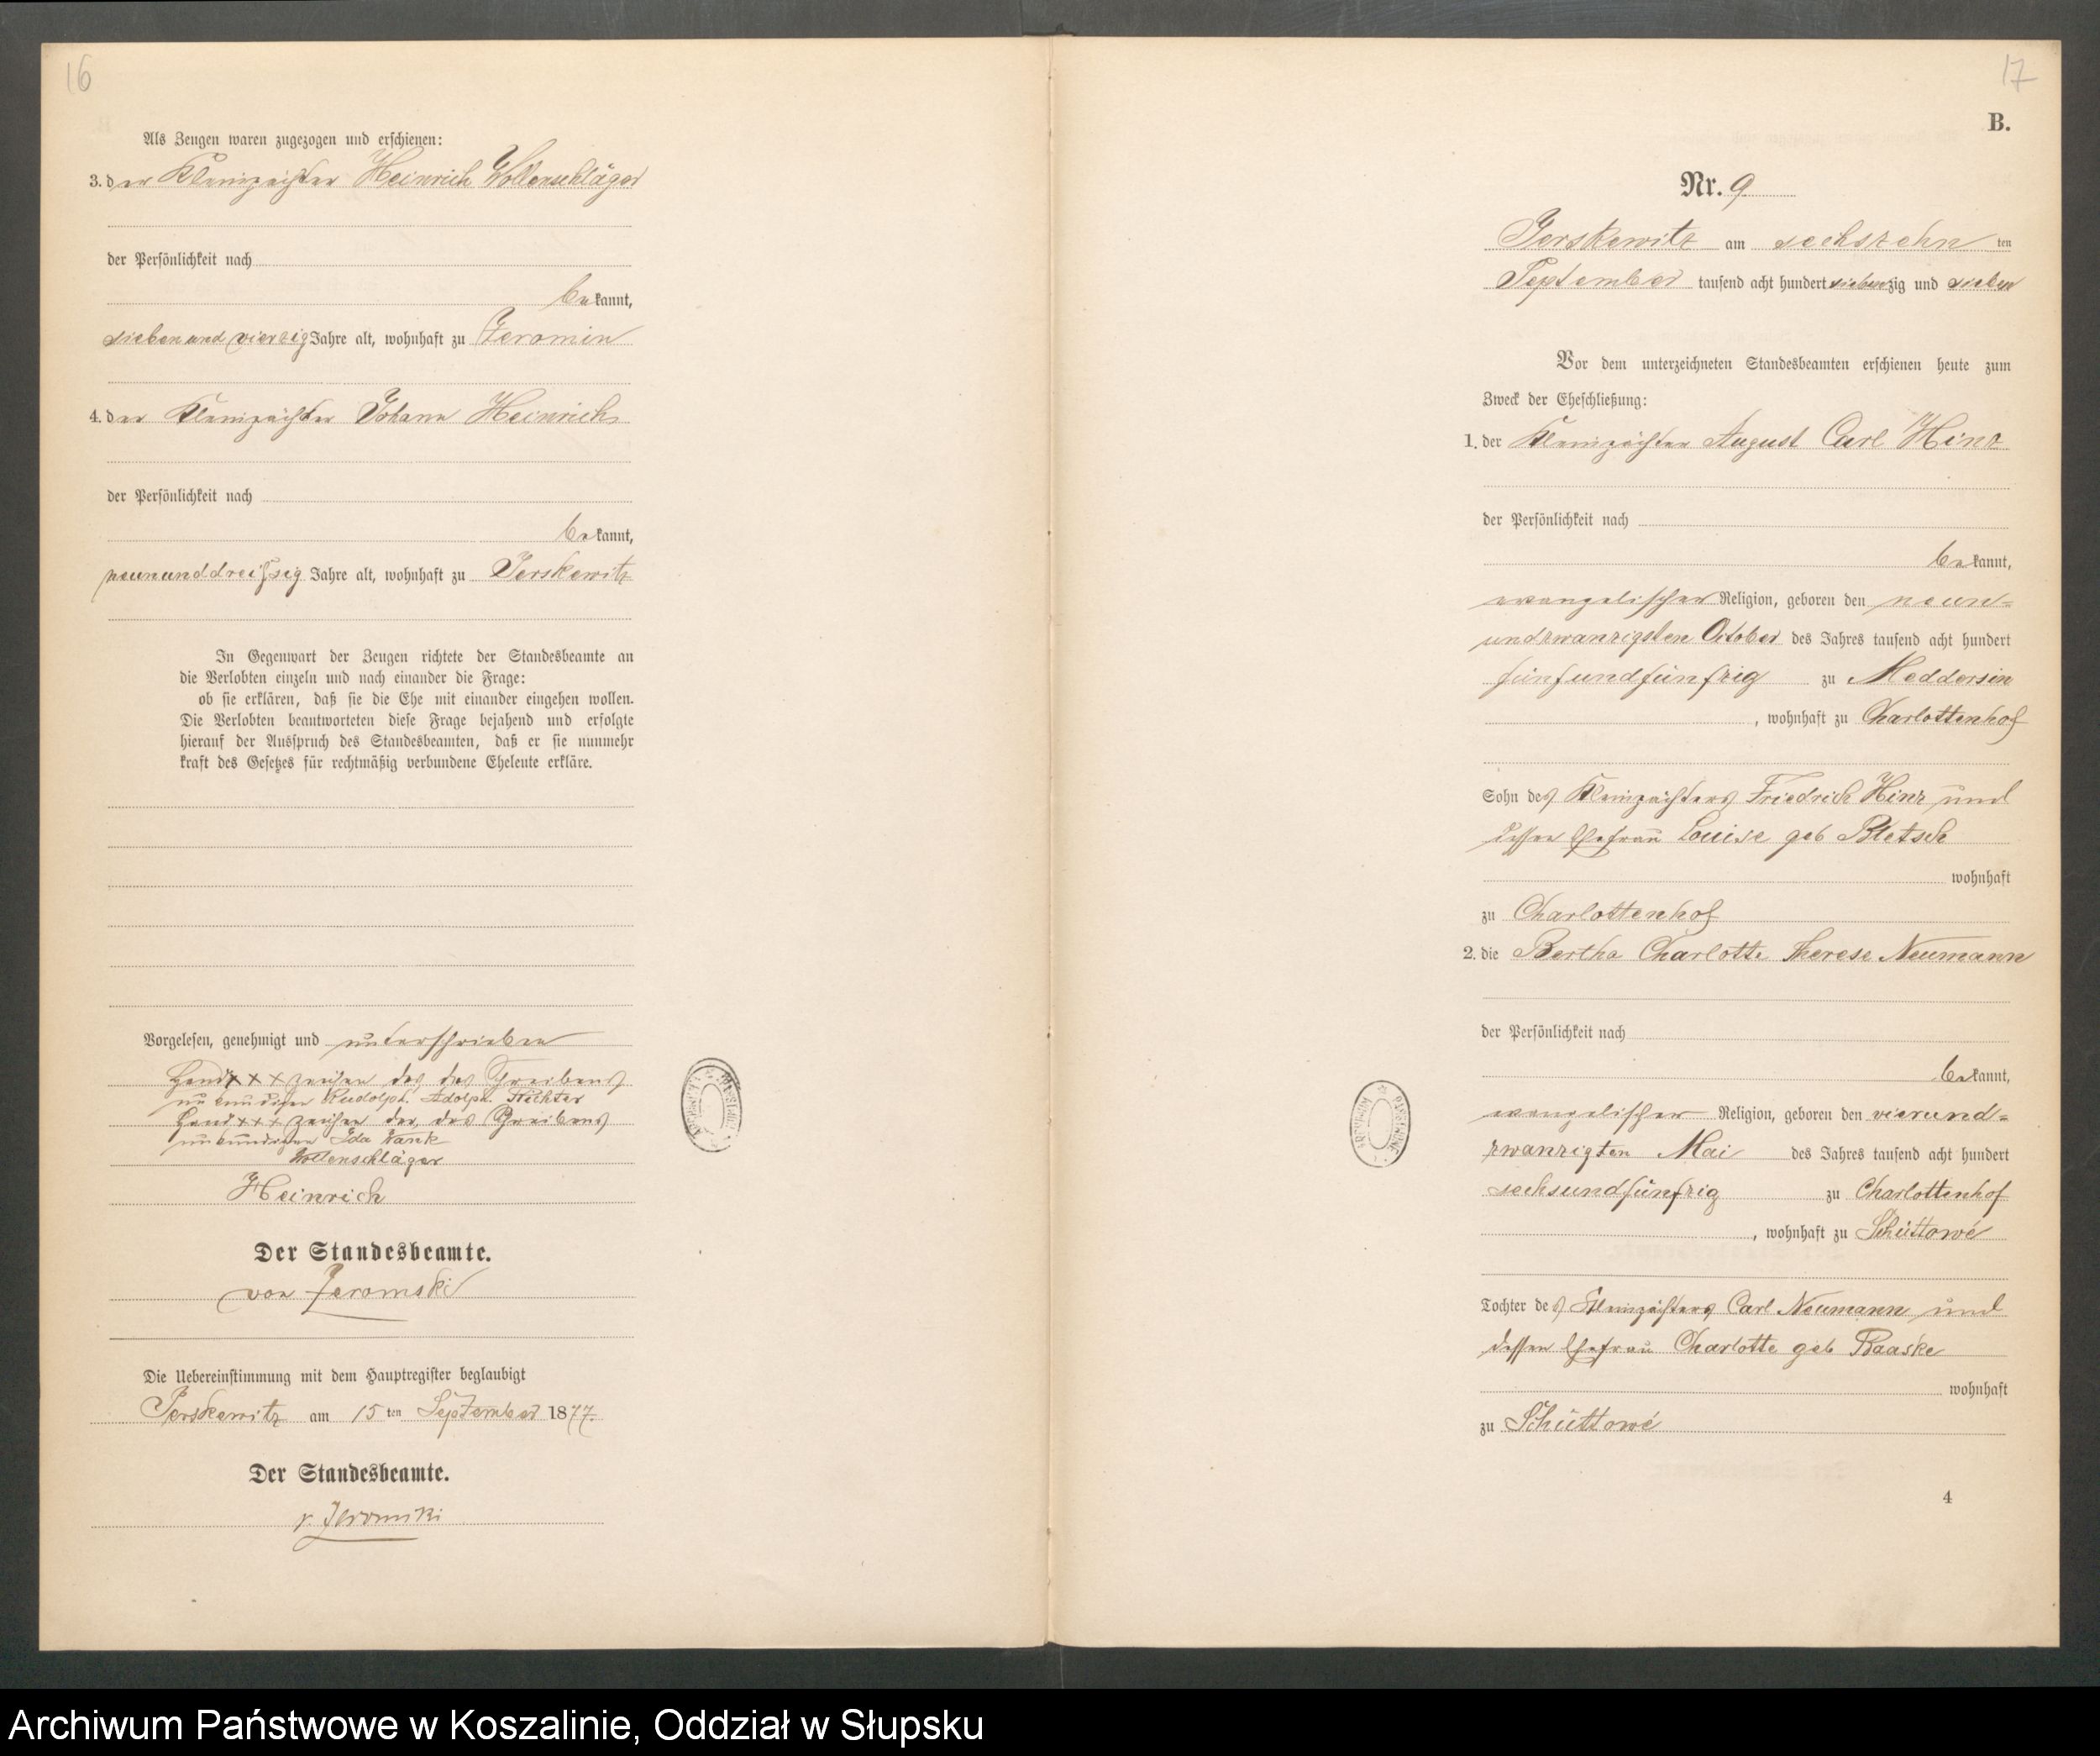 16
Als Zeugen waren zugezogen und erschienen:
3. der Kleinpächter Heinrich Wollenschläger
der Persönlichkeit nach
bekannt,
siebenundvierzig Jahre alt, wohnhaft zu Zeromin
4. der Kleinpächter Johann Heinrich
der Persönlichkeit nach
bekannt,
neununddreißsig Jahre alt, wohnhaft zu Jerskewitz
In Gegenwart der Zeugen richtete der Standesbeamte an
die Verlobten einzeln und nach einander die Frage:
ob sie erklären, daß sie die Ehe mit einander eingehen wollen.
Die Verlobten beantworteten diese Frage bejahend und erfolgte
hierauf der Ausspruch des Standesbeamten, daß er sie nunmehr
kraft des Gesetzes für rechtmäßig verbundene Eheleute erkläre.
Vorgelesen, genehmigt und unterschrieben
Hand xxx zeichen des des Schreibens
unkundigen Rudolph Adolph
Hand xxx zeichen der des Schreibens
unkundigen Ida
Wollenschläger
Heinrich
Der Standesbeamte.
von Zeromski
Die Uebereinstimmung mit dem Hauptregister beglaubigt
Jerskewitz am 15 ten September 1877.
Der Standesbeamte.
v. Zeromski
17
B.
Nr. 9
Jerskewitz am sechszehn ten
September tausend acht hundert siebenzig und sieben
Vor dem unterzeichneten Standesbeamten erschienen heute zum
Zweck der Eheschließung:
1. der Kleinpächter August Carl Hinz
der Persönlichkeit nach
bekannt,
evangelischer Religion, geboren den neun=
undzwanzigsten October des Jahres tausend acht hundert
fünfundfünfzig zu Meddersin
, wohnhaft zu Charlottenhof
Sohn des Kleinpächters Friedrich Hinz und
dessen Ehefrau Louise geb Bletsch
wohnhaft
zu Charlottenhof
2. die Bertha Charlotte Therese Neumann
der Persönlichkeit nach
bekannt,
evangelischer Religion, geboren den vierund=
zwanzigten Mai des Jahres tausend acht hundert
sechsundfünfzig zu Charlottenhof
, wohnhaft zu Schüttowé
Tochter des Kleinpächters Carl Neumann und
dessen Ehefrau Charlotte geb Raaske
wohnhaft
zu Schüttowé
4
Archiwum Państwowe w Koszalinie, Oddział w Słupsku